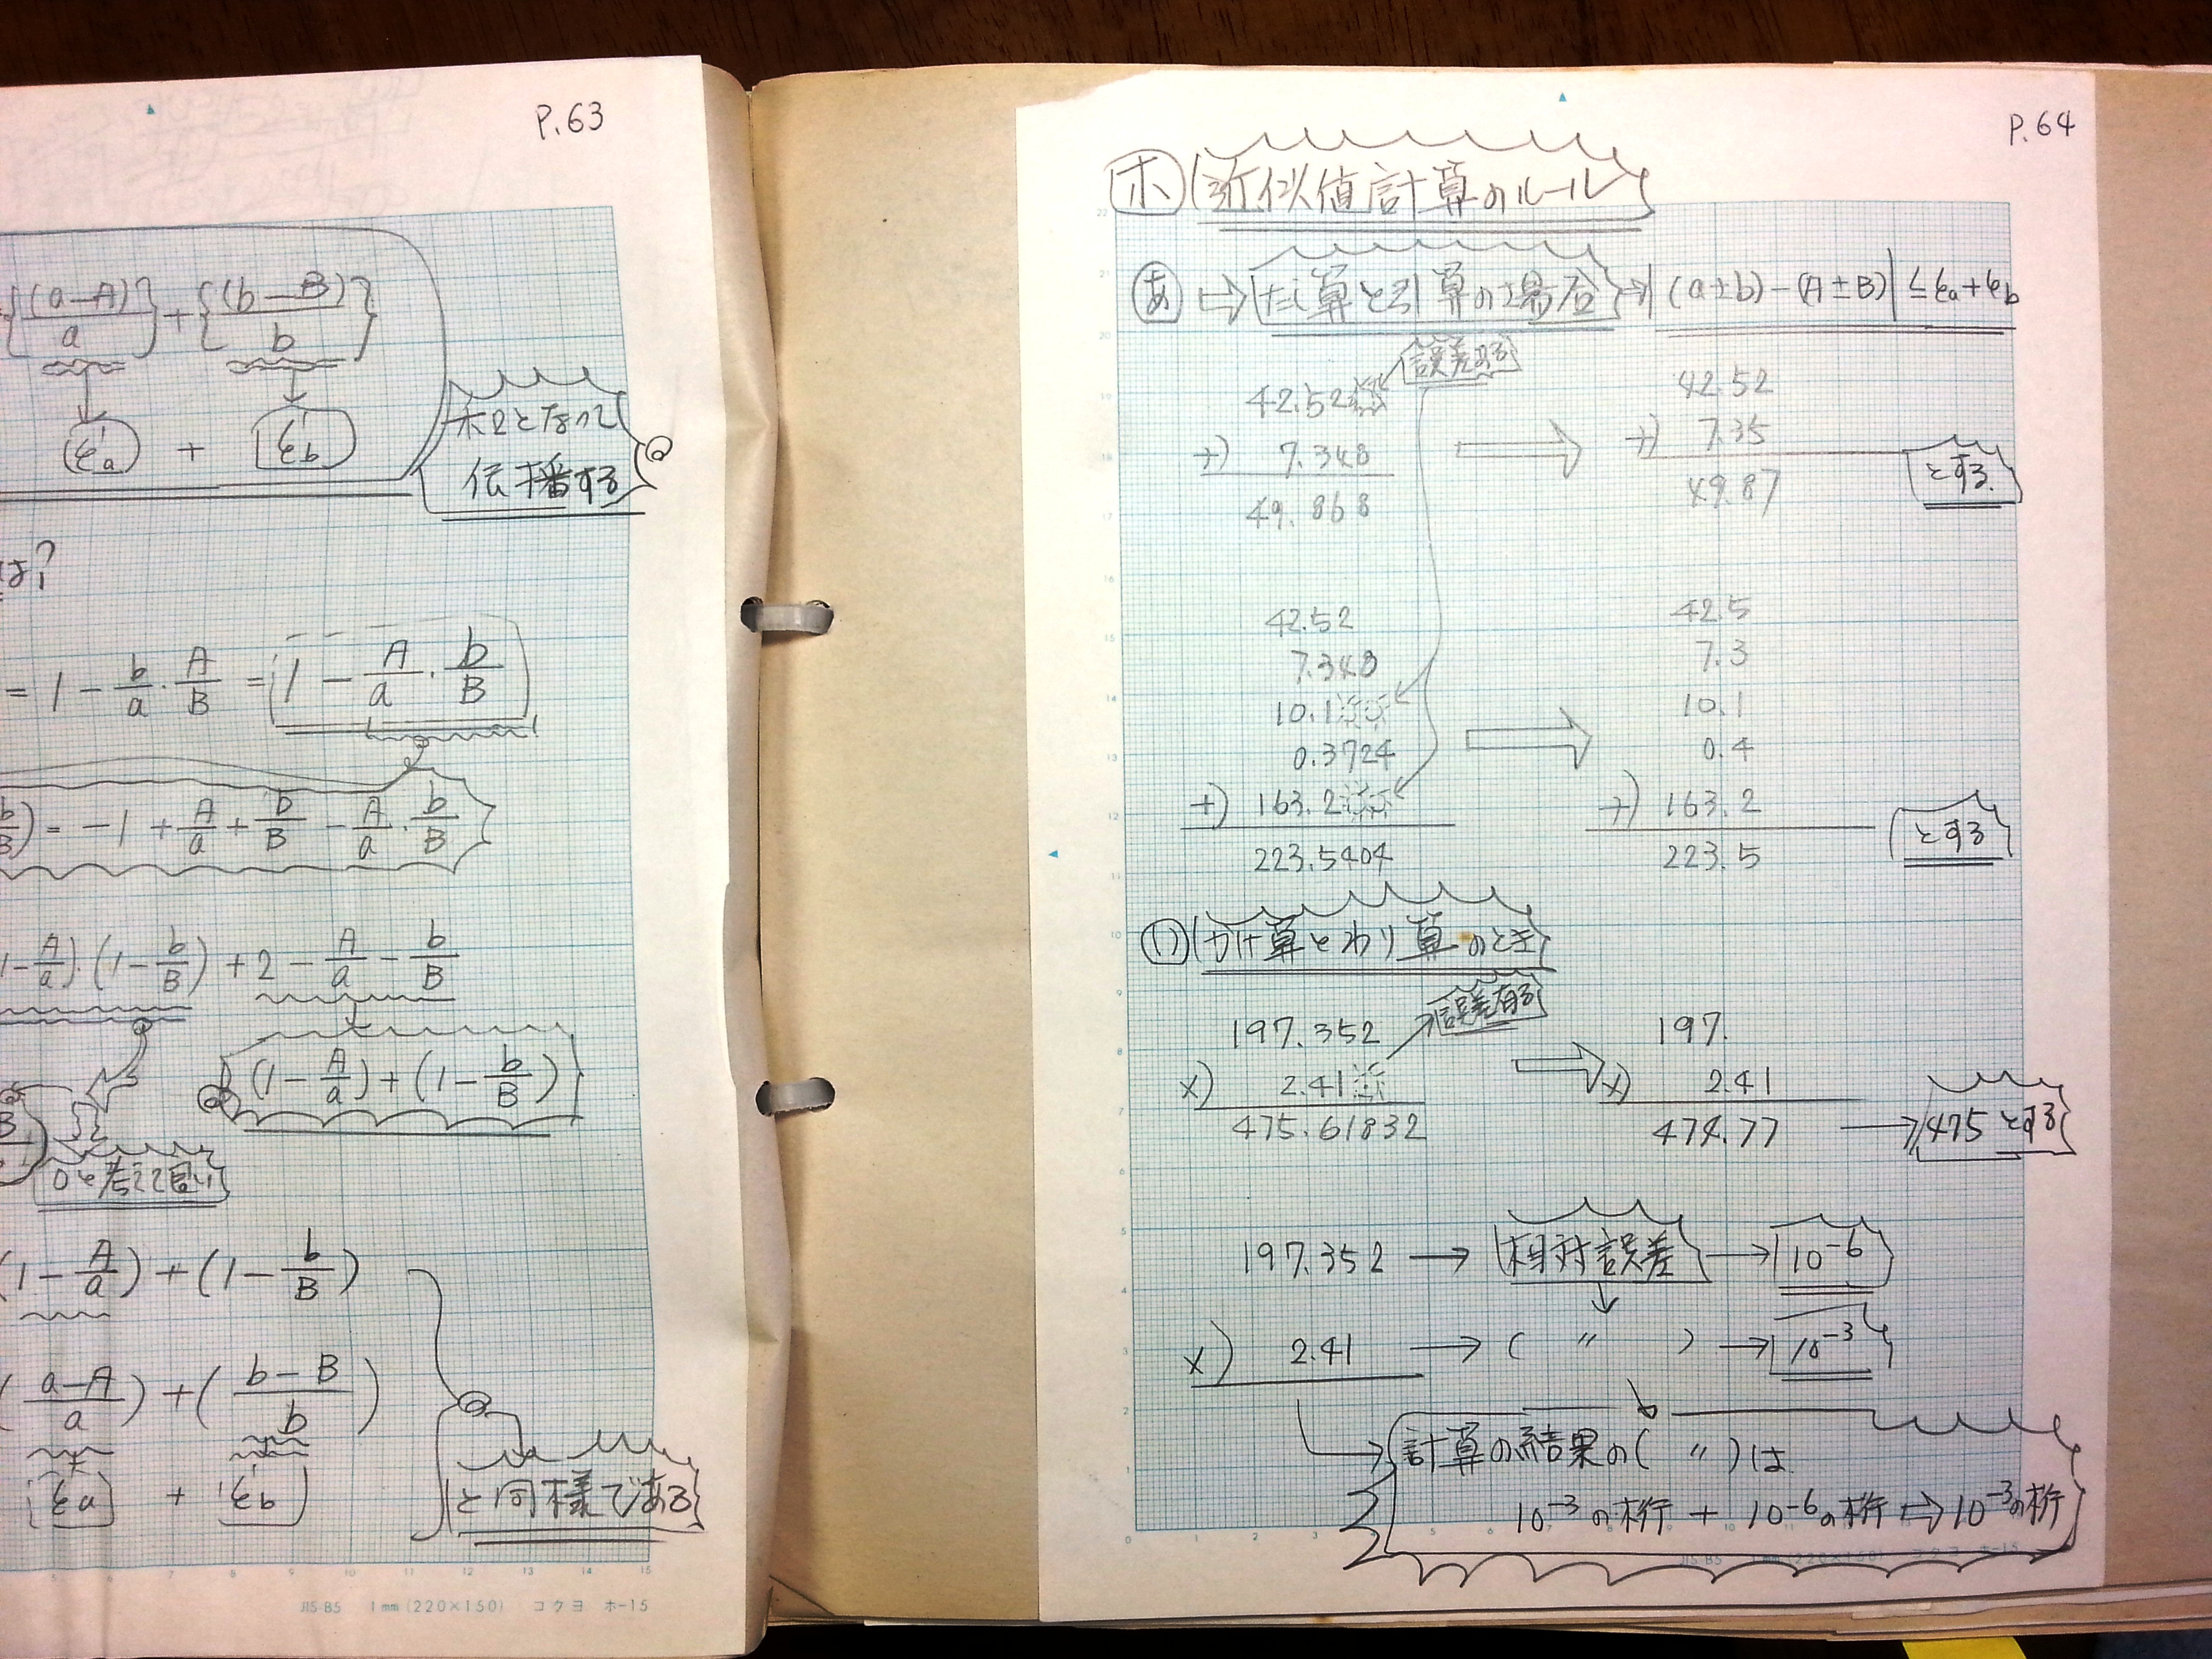 P.63
{(a-A)/a}+{(b-B)/b}
(ε'a) + (ε'b)
和となって
伝播する
は?
= 1 - b/a・A/B = 1 - A/a・b/B
= -1 + A/a + b/B - A/a・b/B
(1-A/a)・(1-b/B) +2 - A/a - b/B
(1-A/a)+(1-b/B)
0と考えて良い
(1-A/a)+(1-b/B)
(a-A/a)+(b-B/b)
ε'a + ε'b
と同様である
JIS B5 1mm(220×150) コクヨ ホ-15
P.64
ホ 近似値計算のルール
あ ⇨ たし算と引算の場合 ⇨ |(a±b)-(A±B)| ≦ εa+εb
誤差ある
42.52
+) 7.348
49.868
⇨
42.52
+) 7.35
49.87
とする
42.52
7.348
10.1
0.3724
+) 163.2
223.5404
⇨
42.5
7.3
10.1
0.4
+) 163.2
223.5
とする
い かけ算とわり算のとき
誤差有る
197.352
×) 2.41
475.61832
⇨
197.
×) 2.41
474.77 → 475とする
197.352 → 相対誤差 → 10⁻⁶
×) 2.41 → ( 〃 ) → 10⁻³
計算の結果の( 〃 )は
10⁻³の桁 + 10⁻⁶の桁 ⇨ 10⁻³の桁